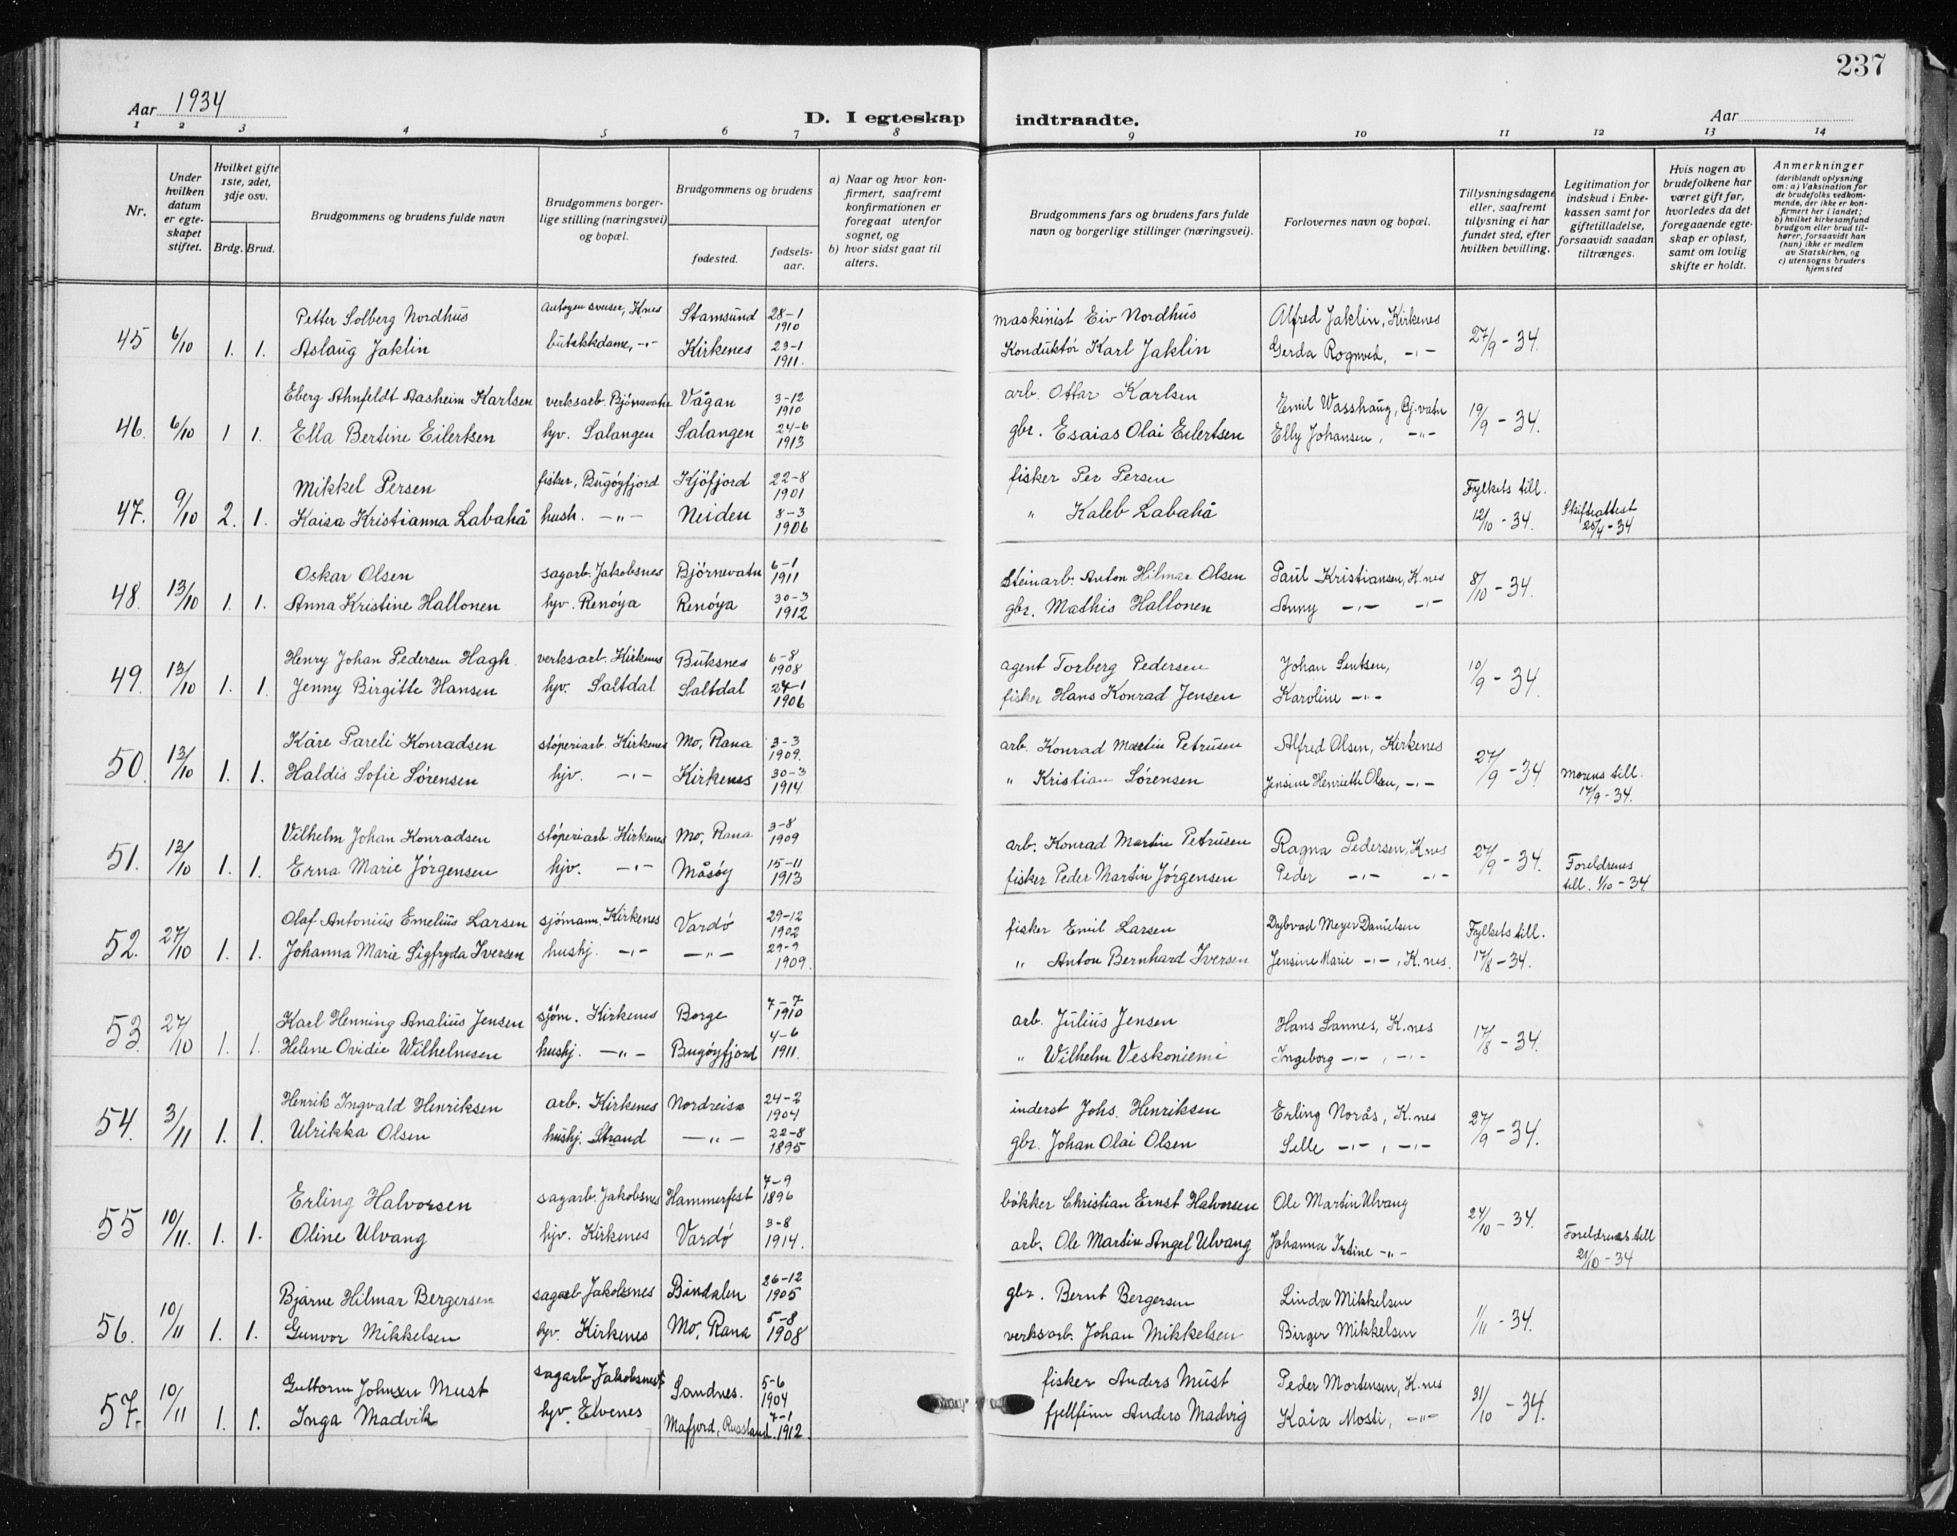 237
Aar 1934
D. I egteskap indtraadte.
Aar
1 2 3 4 5 6 7 8 9 10 11 12 13 14
Nr.
Under hvilken datum er egteskapet stiftet.
Hvilket gifte 1ste, 2det, 3dje osv.
Brdg. Brud.
Brudgommens og brudens fulde navn
Brudgommens borgerlige stilling (næringsvei) og bopæl.
Brudgommens og brudens
fødested.
fødselsaar.
a) Naar og hvor konfirmert, saafremt konfirmationen er foregaat utenfor sognet, og
b) hvor sidst gaat til alters.
Brudgommens fars og brudens fars fulde navn og borgerlige stillinger (næringsvei).
Forlovernes navn og bopæl.
Tillysningsdagene eller, saafremt tillysning ei har fundet sted, efter hvilken bevilling.
Legitimation for indskud i Enkekassen samt for giftetilladelse, forsaavidt saadan tiltrænges.
Hvis nogen av brudefolkene har været gift før, hvorledes da det foregaaende egteskap er opløst, samt om lovlig skifte er holdt.
Anmerkninger (deriblandt oplysning om: a) Vaksination for de brudefolks vedkommende, der ikke er konfirmert her i landet; b) hvilket kirkesamfund brudgom eller brud tilhører, forsaavidt han (hun) ikke er medlem av Statskirken, og c) utensogns bruders hjemsted
45 6/10 1. 1. Petter Solberg Nordhus autogensveiser, K.nes Stamsund 28-1 1910 maskinist Eiv Nordhus Alfred Jaklin, Kirkenes 27/9-34.
Aslaug Jaklin butikkdame, -"- Kirkenes 23-1 1911. Konduktör Karl Jaklin Gerda Rognved, -"-
46. 6/10 1 1. Eberg Ahnfeldt Aasheim Karlsen verksarb. Bjørnevatn Vågan 3-12 1910 arb. Ottar Karlsen Emil Wasshaug, Bj.vatn 19/9-34.
Ella Bertine Eilertsen hjv. Salangen Salangen 24-6 1913 gbr. Esaias Olai Eilertsen Elly Johansen, -"-
47. 9/10 2. 1. Mikkel Persen fisker, Bugöyfjord Kjöfjord 22-8 1901 fisker Per Persen Fylkets till. 12/10-34.
Kaisa Kristianna Labahå hush. -"- Neiden 8-3 1906 " Kaleb Labahå Skifteattest 25/4-34
48. 13/10 1. 1. Oskar Olsen sagarb. Jakobsnes Björnevatn 6-1 1911 Steinarb. Anton Hilmar Olsen Paul Kristiansen, K.nes 8/10-34.
Anna Kristine Hallonen hjv. Renöya Renöya 30-3 1912 gbr. Mathis Hallonen Anny -"- -"-
49. 13/10 1. 1. Henry Johan Pedersen Hagh. verksarb. Kirkenes Buksnes 6-8 1908 agent Torberg Pedersen Johan Sentsen, 10/9-34.
Jenny Birgitte Hansen hjv. Saltdal Saltdal 24-1 1906 fisker Hans Konrad Jensen Karoline -"-
50. 13/10 1. 1. Kåre Pareli Konradsen stöperiarb. Kirkenes Mo, Rana 3-3 1909. arb. Konrad Martin Petrusen Alfred Olsen, Kirkenes 27/9-34
Haldis Sofie Sörensen hjv. -"- Kirkenes 30-3 1914. " Kristian Sörensen Jensine Henriette Olsen, -"- Morens till. 17/9-34.
51. 13/10 1. 1. Vilhelm Johan Konradsen stöperiarb. Kirkenes Mo, Rana 3-8 1909 arb. Konrad Martin Petrusen Ragna Pedersen, K.nes 27/9-34.
Erna Marie Jörgensen hjv. -"- Måsöy 15-11 1913 fisker Peder Martin Jörgensen Peder -"- -"- Foreldrenes till. 1/10-34
52. 27/10 1. 1. Olaf Antonius Emelius Larsen sjömann, Kirkenes Vardö 29-12 1902 fisker Emil Larsen Dybvad Meyer Danielsen Fylkets till.
Johanna Marie Sigfryda Iversen hushj. -"- -"- 29-9 1909. " Anton Bernhard Iversen Jensine Marie -"-, K.nes. 17/8-34.
53. 27/10 1. 1. Karl Henning Analius Jensen sjöm. Kirkenes Borge 7-7 1910 arb. Julius Jensen Hans Sannes, K.nes 17/8-34.
Helene Ovidie Wilhelmsen hushj. -"- Bugöyfjord 4-6 1911. " Wilhelm Veskoniemi Ingeborg -"-, -"-
54. 3/11 1. 1. Henrik Ingvald Henriksen arb. Kirkenes Nordreisa 24-2 1904 inderst Johs. Henriksen Erling Norås, K.nes 27/9-34.
Ulrikka Olsen hushj. Strand -"- 22-8 1895 gbr. Johan Olai Olsen Sille -"-, -"-
55 10/11. 1. 1. Erling Halvorsen sagarb. Jakobsnes Hammerfest 7-9 1896 bökker Christian Ernst Halvorsen Ole Martin Ulvang 24/10-34.
Oline Ulvang hjv. Kirkenes Vardö 3-8 1914. arb. Ole Martin Angel Ulvang Johanna Irtine -"- Foreldrenes till 21/10-34
56. 10/11 1. 1. Bjarne Hilmar Bergersen sagarb Jakobsnes Bindalen 26-12 1905 gbr. Bernt Bergersen Linda Mikkelsen 1/11-34.
Gunvor Mikkelsen hjv. Kirkenes Mo, Rana 5-8 1908 verksarb. Johan Mikkelsen Birger Mikkelsen
57. 10/11 1. 1. Guttorm Johnsen Must sagarb. Jakobsnes Sandnes. 5-6 1904 fisker Anders Must Peder Mortensen, K.nes 31/10-34.
Inga Madvik hjv. Elvenes Mafjord, Russland 7-1 1912. fjellfinn Anders Madvig Kaia Mosti, -"-